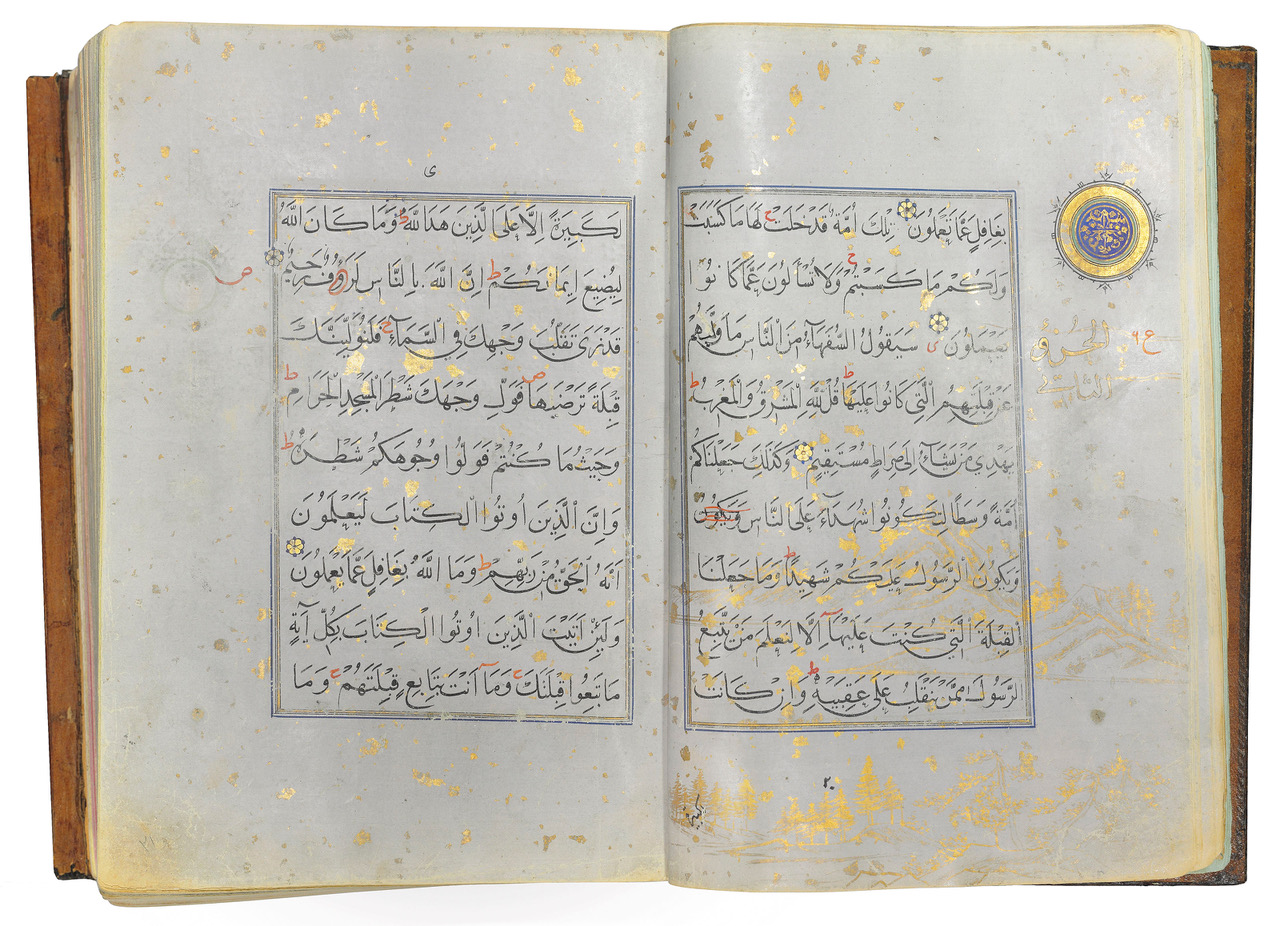 بِغَافِلٍ عَمَّا تَعْمَلُونَ تِلْكَ أُمَّةٌ قَدْ خَلَتْ لَهَا مَا كَسَبَتْ
وَلَكُمْ مَا كَسَبْتُمْ وَلَا تُسْأَلُونَ عَمَّا كَانُوا
يَعْمَلُونَ سَيَقُولُ السُّفَهَاءُ مِنَ النَّاسِ مَا وَلّٰيهُمْ
عَنْ قِبْلَتِهِمُ الَّتِي كَانُوا عَلَيْهَا قُلْ لِلّٰهِ الْمَشْرِقُ وَالْمَغْرِبُ
يَهْدِي مَنْ يَشَاءُ اِلَى صِرَاطٍ مُسْتَقِيمٍ وَكَذَلِكَ جَعَلْنَاكُمْ
اُمَّةً وَسَطًا لِتَكُونُوا شُهَدَاءَ عَلَى النَّاسِ وَيَكُونَ
وَيَكُونَ الرَّسُولُ عَلَيْكُمْ شَهِيدًا وَمَا جَعَلْنَا
الْقِبْلَةَ الَّتِي كُنْتَ عَلَيْهَا اِلَّا لِنَعْلَمَ مَنْ يَتَّبِعُ
الرَّسُولَ مِمَّنْ يَنْقَلِبُ عَلَى عَقِبَيْهِ وَاِنْ كَانَتْ
الجزؤ
الثانى
ع ٦
٢٠
ى
لَكَبِيرَةً اِلَّا عَلَى الَّذِينَ هَدَا اللّٰهُ وَمَا كَانَ اللّٰهُ
لِيُضِيعَ اِيمَانَكُمْ اِنَّ اللّٰهَ بِالنَّاسِ لَرَؤُفٌ رَحِيمٌ
قَدْ نَرَى تَقَلُّبَ وَجْهِكَ فِي السَّمَاءِ فَلَنُوَلِّيَنَّكَ
قِبْلَةً تَرْضَيهَا فَوَلِّ وَجْهَكَ شَطْرَ الْمَسْجِدِ الْحَرَامِ
وَحَيْثُ مَا كُنْتُمْ فَوَلُّوا وُجُوهَكُمْ شَطْرَهُ
وَاِنَّ الَّذِينَ اُوتُوا الْكِتَابَ لَيَعْلَمُونَ
اَنَّهُ الْحَقُّ مِنْ رَبِّهِمْ وَمَا اللّٰهُ بِغَافِلٍ عَمَّا يَعْمَلُونَ
وَلَئِنْ اَتَيْتَ الَّذِينَ اُوتُوا الْكِتَابَ بِكُلِّ آيَةٍ
مَا تَبِعُوا قِبْلَتَكَ وَمَا اَنْتَ بِتَابِعٍ قِبْلَتَهُمْ وَمَا
ص